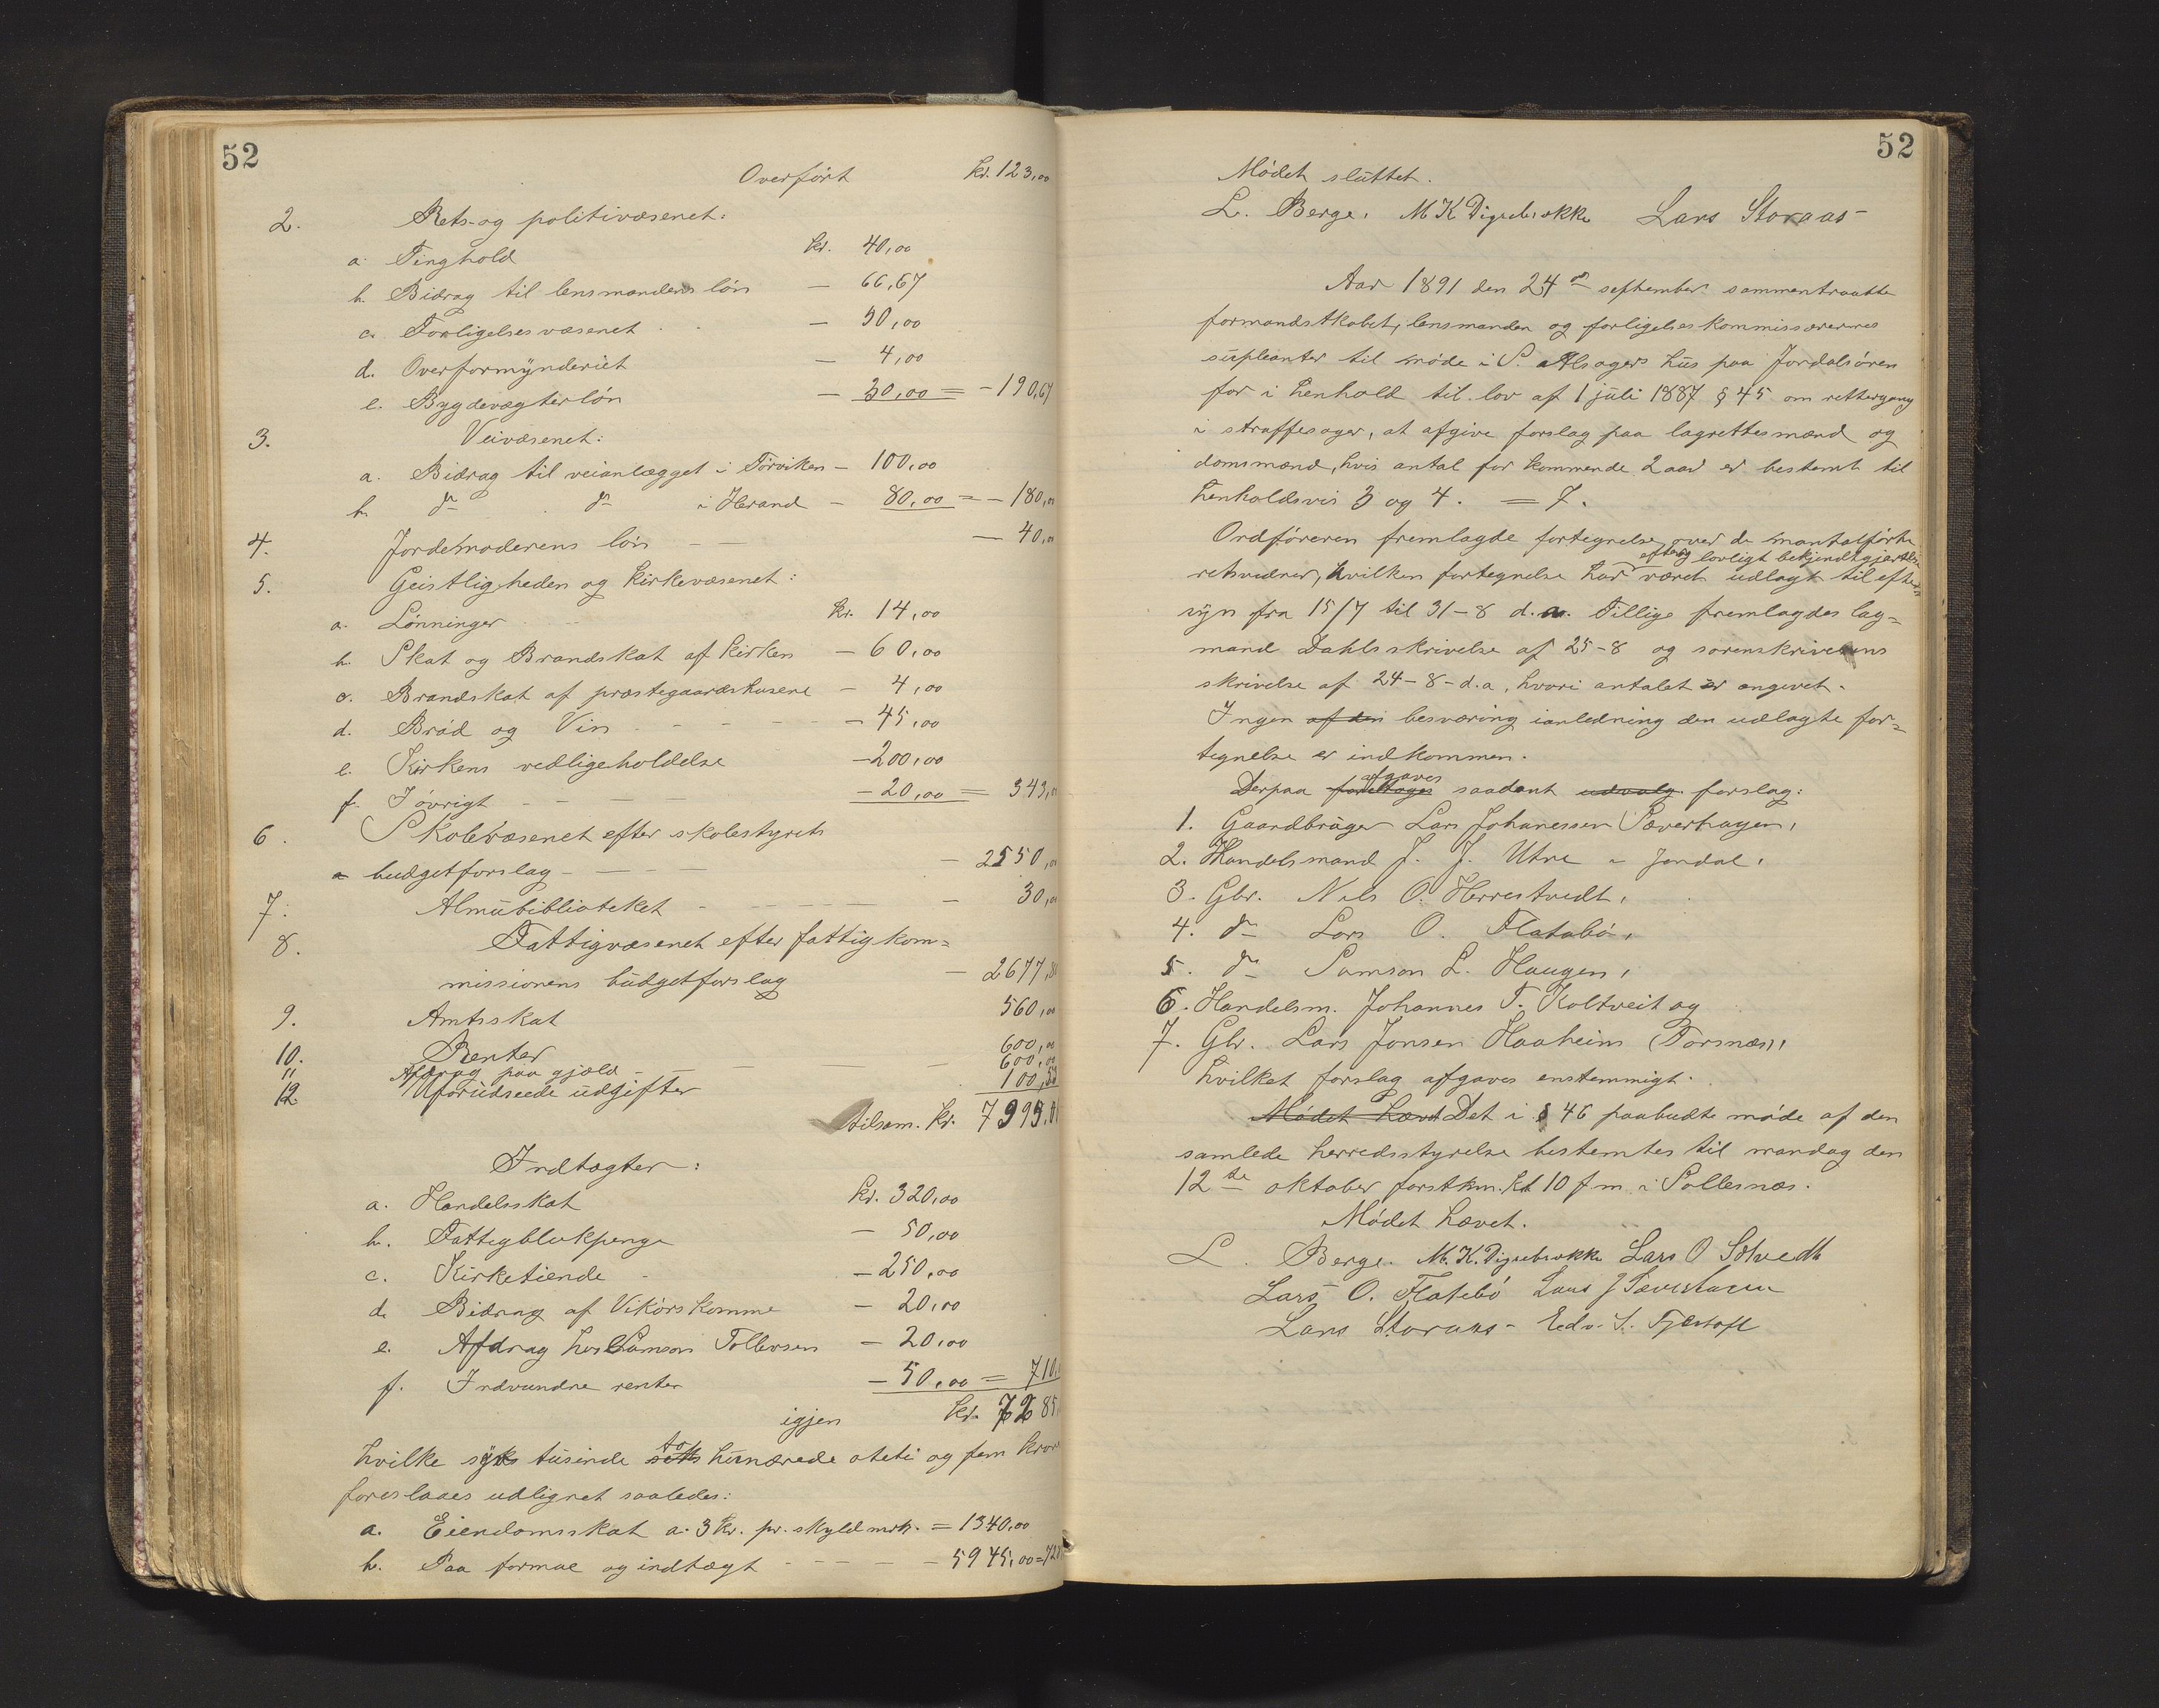 52
Overført Kr. 123,00
2. Rets- og politivæsenet:
a. Tinghold Kr. 40,00
b. Bidrag til lensmandens løn — 66,67
c. Forligelsesvæsenet — 50,00
d. Overformynderiet — 4,00
e. Bygdevægterløn — 30,00 = - 190,67
3. Veivæsenet:
a. Bidrag til veianlægget i Tørviken — 100,00
b. do do i Herand — 80,00 = - 180,00
4. Jordemoderens løn — 40,00
5. Geistligheden og kirkevæsenet:
a. Lønninger Kr. 14,00
b. Skat og Brandskat af kirken — 60,00
c. Brandskat af præstegaardshusene — 4,00
d. Brød og Vin — 45,00
e. Kirkens vedligeholdelse — 200,00
f. I øvrigt — 20,00 = 343,00
6. Skolevæsenet efter skolestyrets
budgetforslag — 2550,00
7. Almubiblioteket — 30,00
8. Fattigvæsenet efter fattigkom=
missionens budgetforslag — 2677,80
9. Amtsskat 560,00
10. Renter 600,00
11 Afdrag paa gjæld — 600,00
12. Uforudseede udgifter 100,53
tilsam. Kr. 7995,00
Indtægter:
a. Handelsskat Kr. 320,00
b. Fattigblokpenge — 50,00
c. Kirketiende — 250,00
d. Bidrag af Vikørs komme — 20,00
e. Afdrag hos Samson Tollevsen — 20,00
f. Indvundne renter — 50,00 = 710,
igjen Kr. 7285,
hvilke syv tusinde to hundrede otteti og fem kron
foreslaaes udlignet saaledes:
a. Eiendomsskat a. 3 Kr. pr. skyldmrk. = 1340,00
b. Paa formue og indtægt — 5945,00 = 728
52
Mødet sluttet.
L. Berge. M K Digrebrække Lars Storaas
Aar 1891 den 24de september sammentraatte
formandskabet, lensmanden og forligelseskommissærernes
supleanter til møde i S. Alsagers hus paa Jondalsøren
for i henhold til lov af 1 juli 1887 § 45 om rettergang
i straffesager, at afgive forslag paa lagrettesmænd og
domsmænd, hvis antal for kommende 2 aar er bestemt til
henholdsvis 3 og 4. = 7.
Ordføreren fremlagde fortegnelse over de mantalførte
efter lovligt bekjendtgjørelse
retsvidner, hvilken fortegnelse har været udlagt til efter
syn fra 15/7 til 31-8 d.a. Tillige fremlagdes lag=
mand Dahls skrivelse af 25-8 og sorenskriverens
skrivelse af 24-8-d.a, hvori antalet er angivet.
Ingen af den besværing ianledning den udlagte for=
tegnelse er indkommen.
afgaves
Derpaa foretoges saadant udvalg forslag:
1. Gaardbruger Lars Johanessen Sæverhagen,
2. Handelsmand J. J. Utne i Jondal,
3. Gbr. Nils O. Herrestvedt,
4. do Lars O. Flatabø,
5. do Samson L. Haugen,
6. Handelsm. Johannes T. Koltveit og
7. Gbr. Lars Jonsen Haaheim (Torsnæs),
hvilket forslag afgaves enstemmigt.
Mødet hævet Det i § 46 paabudte møde af den
samlede herredsstyrelse bestemtes til mandag den
12te oktober førstkm. kl 10 fm i Sollesnæs.
Mødet hævet.
L. Berge. M. K. Digrebrække Lars O. Solvedt
Lars O. Flatebø Lars J Sæverhagen
Lars Storaas - Edv. S. Fjertoft